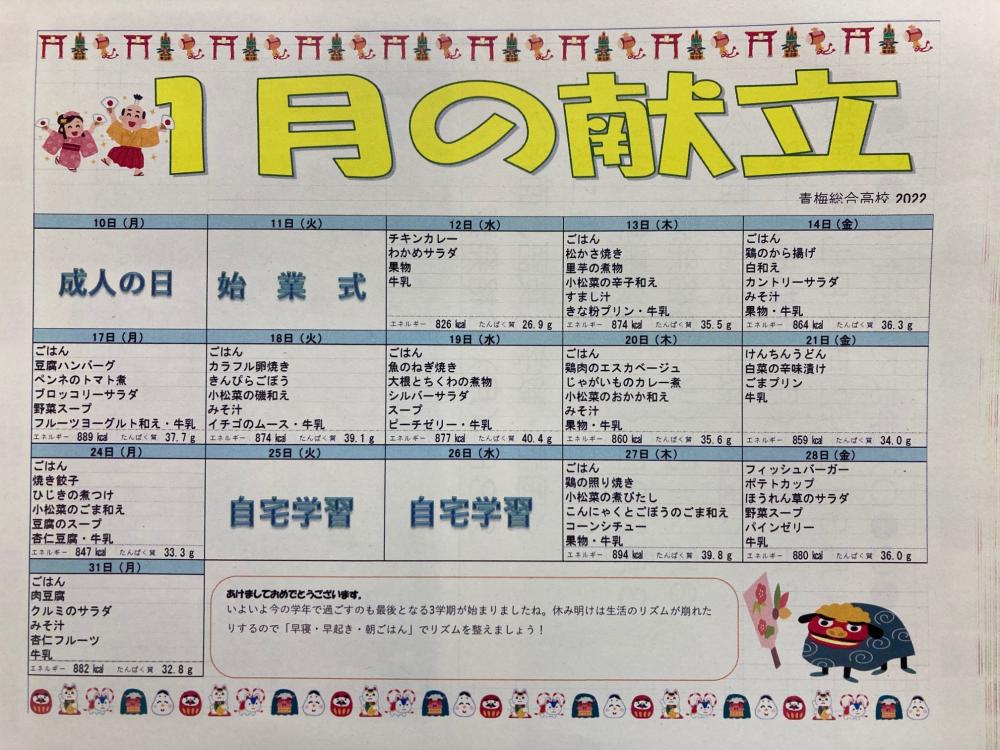 1月の献立
青梅総合高校 2022
10日(月)
成人の日
11日(火)
始業式
12日(水)
チキンカレー
わかめサラダ
果物
牛乳
エネルギー 826 kcal たんぱく質 26.9 g
13日(木)
ごはん
松かさ焼き
里芋の煮物
小松菜の辛子和え
すまし汁
きな粉プリン・牛乳
エネルギー 874 kcal たんぱく質 35.5 g
14日(金)
ごはん
鶏のから揚げ
白和え
カントリーサラダ
みそ汁
果物・牛乳
エネルギー 864 kcal たんぱく質 36.3 g
17日(月)
ごはん
豆腐ハンバーグ
ペンネのトマト煮
ブロッコリーサラダ
野菜スープ
フルーツヨーグルト和え・牛乳
エネルギー 889 kcal たんぱく質 37.7 g
18日(火)
ごはん
カラフル卵焼き
きんぴらごぼう
小松菜の磯和え
みそ汁
イチゴのムース・牛乳
エネルギー 874 kcal たんぱく質 39.1 g
19日(水)
ごはん
魚のねぎ焼き
大根とちくわの煮物
シルバーサラダ
スープ
ピーチゼリー・牛乳
エネルギー 877 kcal たんぱく質 40.4 g
20日(木)
ごはん
鶏肉のエスカベージュ
じゃがいものカレー煮
小松菜のおかか和え
みそ汁
果物・牛乳
エネルギー 860 kcal たんぱく質 35.6 g
21日(金)
けんちんうどん
白菜の辛味漬け
ごまプリン
牛乳
エネルギー 859 kcal たんぱく質 34.0 g
24日(月)
ごはん
焼き餃子
ひじきの煮つけ
小松菜のごま和え
豆腐のスープ
杏仁豆腐・牛乳
エネルギー 847 kcal たんぱく質 33.3 g
25日(火)
自宅学習
26日(水)
自宅学習
27日(木)
ごはん
鶏の照り焼き
小松菜の煮びたし
こんにゃくとごぼうのごま和え
コーンシチュー
果物・牛乳
エネルギー 894 kcal たんぱく質 39.8 g
28日(金)
フィッシュバーガー
ポテトカップ
ほうれん草のサラダ
野菜スープ
パインゼリー
牛乳
エネルギー 880 kcal たんぱく質 36.0 g
31日(月)
ごはん
肉豆腐
クルミのサラダ
みそ汁
杏仁フルーツ
牛乳
エネルギー 882 kcal たんぱく質 32.8 g
あけましておめでとうございます。
いよいよ今の学年で過ごすのも最後となる3学期が始まりましたね。休み明けは生活のリズムが崩れた
りするので「早寝・早起き・朝ごはん」でリズムを整えましょう！